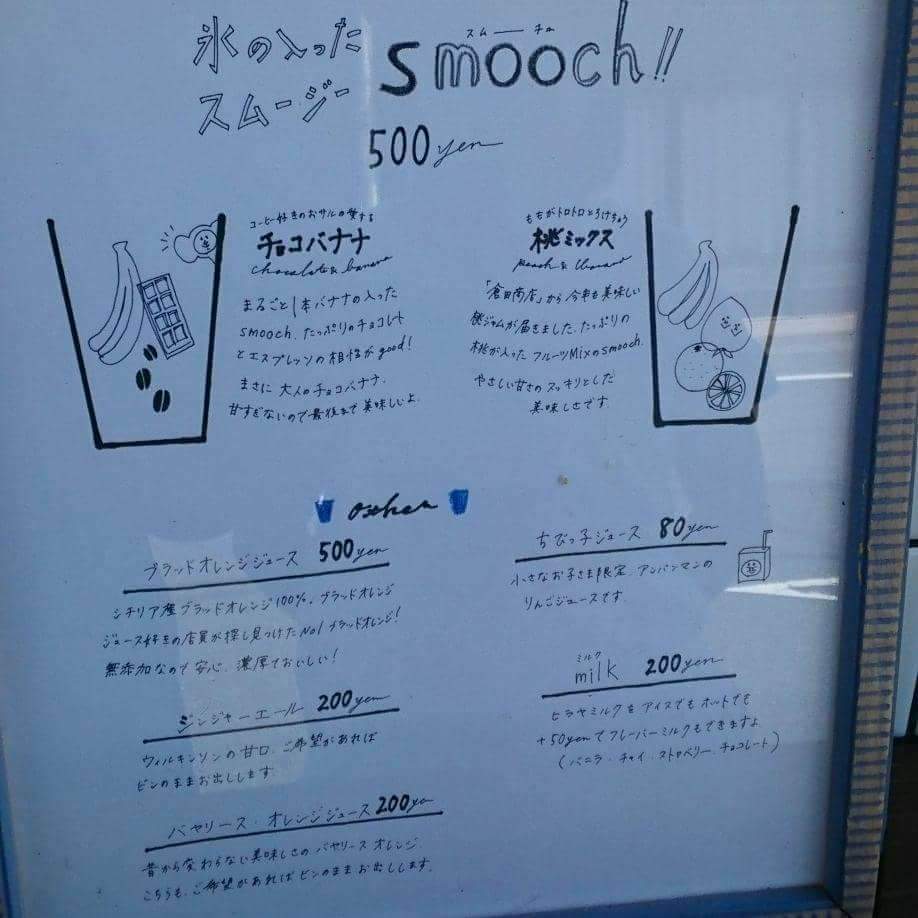 氷の入った
スムージー
スムーチュ
smooch!!
500yen
コーヒー好きのおサルの愛する
チョコバナナ
chocolate & banana
まるごと1本バナナの入った
smooch. たっぷりのチョコレート
とエスプレッソの相性がgood!
まさに 大人のチョコバナナ.
甘すぎないので最後まで美味しいよ.
ももがトロトロとろけちゃう
桃ミックス
peach &
「倉田商店」から今年も美味しい
桃ジャムが届きました. たっぷりの
桃が入った フルーツMixのsmooch.
やさしい甘さの スッキリとした
美味しさです.
other
ブラッドオレンジジュース 500yen
シチリア産ブラッドオレンジ100%. ブラッドオレンジ
ジュース好きの店員が探し見つけたNo1 ブラッドオレンジ!
無添加なので安心. 濃厚でおいしい!
ジンジャーエール 200yen
ウィルキンソンの甘口. ご希望があれば
ビンのままお出しします.
バヤリース・オレンジジュース 200yen
昔から変わらない美味しさの バヤリース オレンジ.
こちらも. ご希望があればビンのままお出しします.
ちびっ子ジュース 80yen
小さなお子さま限定. アンパンマンの
りんごジュースです.
ミルク
milk 200yen
ヒラヤミルクを アイスでも ホットでも
+50yenでフレーバーミルクもできますよ
(バニラ・チャイ・ストロベリー・チョコレート)